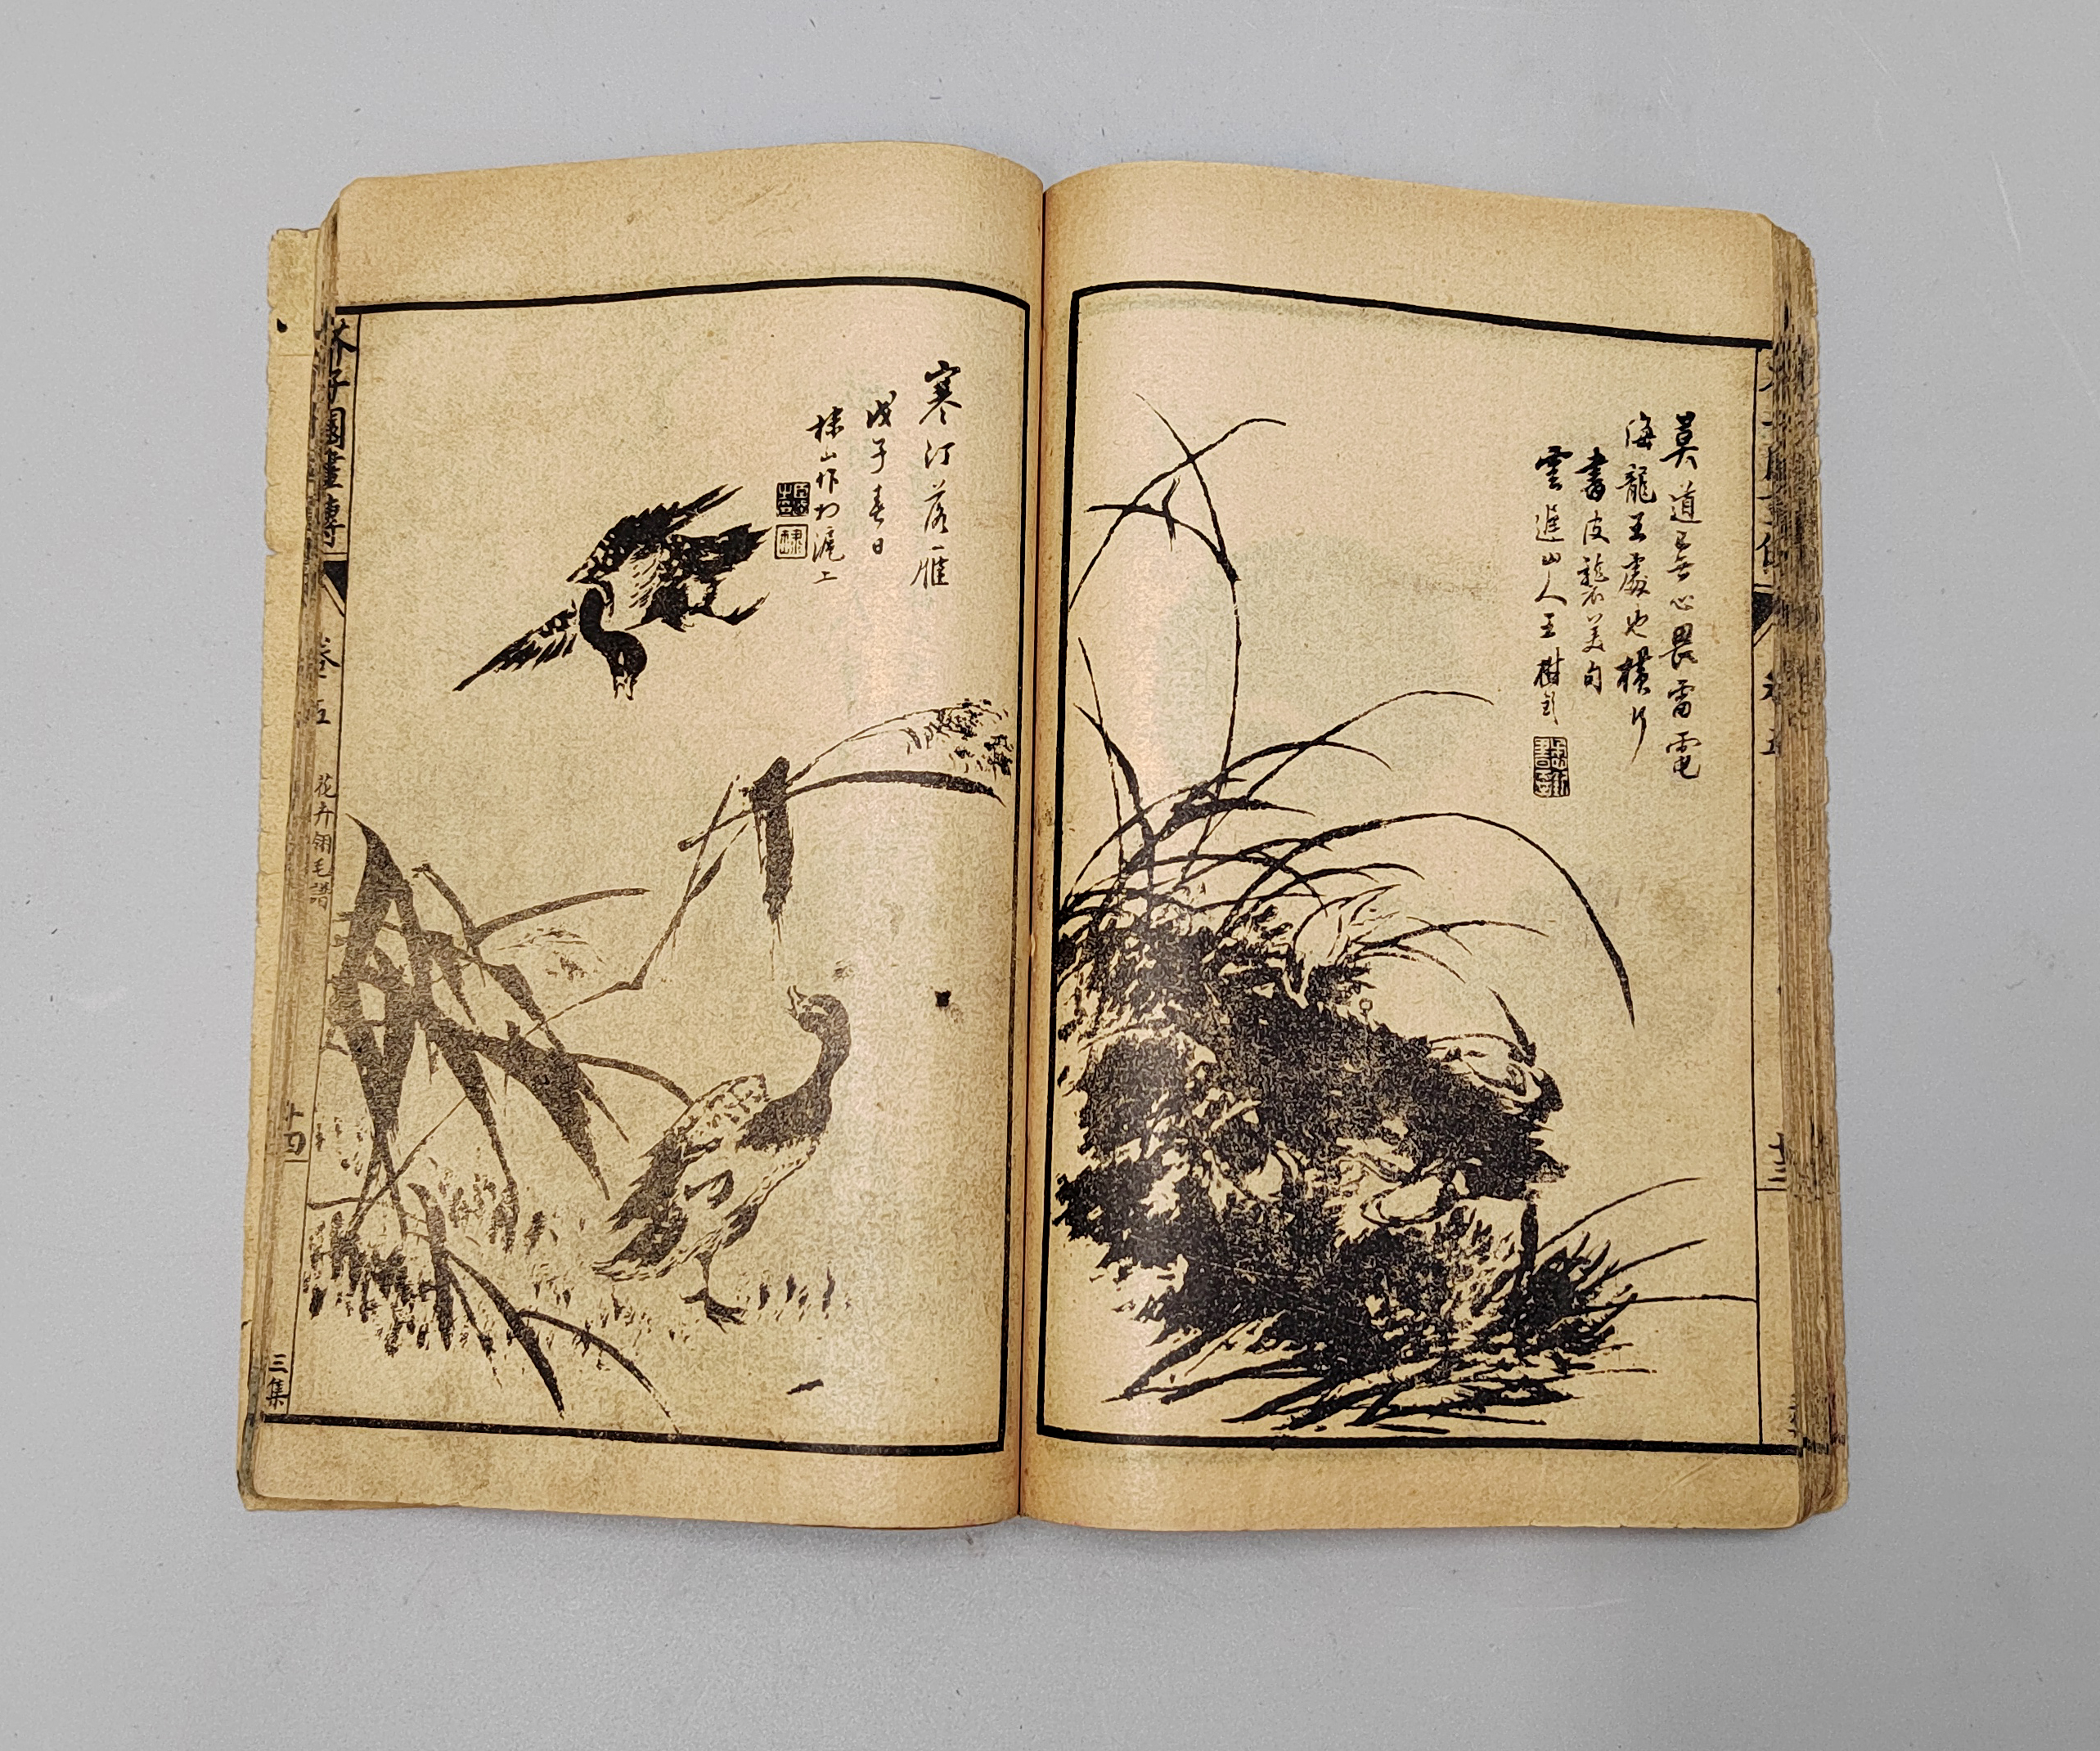 莫道無心畏雷電
海龍王處也橫行
書皮襲美句
雲遲山人王樹
寒汀落雁
戊子春日
棣山作於滬上
芥子園畫傳
卷五
花卉翎毛譜
十四
三集